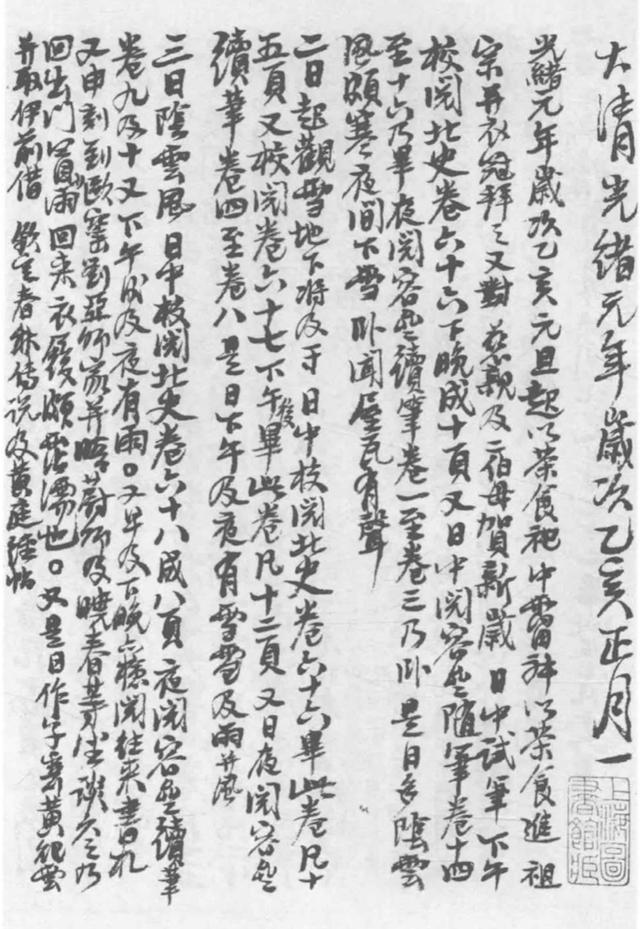 大清光緒元年歲次乙亥正月一
光緒元年歲次乙亥元旦起以茶食祀中霤神以茶食進 祖
宗并衣冠拜之又對 慈親及二伯母賀新歲 日中試筆下午
校閱北史卷六十六下晚成十頁又日中閱容齋隨筆卷十四
至十六乃畢夜閱容齋續筆卷一至卷三乃卧是日多陰雲
風頗寒夜間下雪卧聞屋瓦有聲
二日起觀雪地下將及寸日中校閱北史卷六十六畢此卷凡十
五頁又校閱卷六十七下午後畢此卷凡十二頁又日夜閱容齋
續筆卷四至卷八是日下午及夜有雪雪及雨并風
三日陰雲風日中校閱北史卷六十八成八頁夜閱容齋續筆
卷九及十又下午及夜有雨又早及下晚閱往來書札
又申刻到劉亞師家并晤蔚師及曉春等坐談久之乃
回出門冒雨回來衣履頗霑濡也又是日作字寄黃
并取伊前借 欽定春秋傳說及黃庭經帖
上海圖書館藏